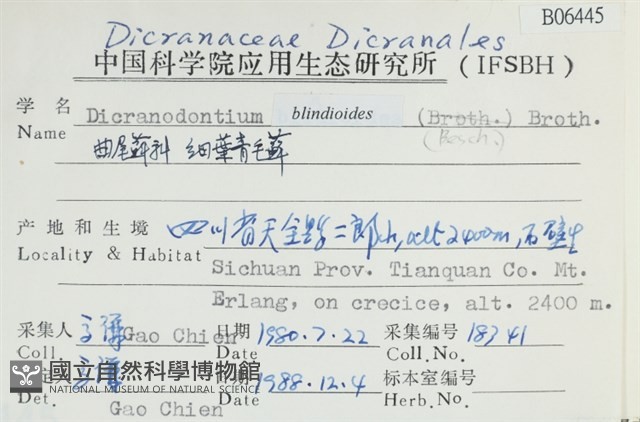 B06445
Dicranaceae Dicranales
中国科学院应用生态研究所 (IFSBH)
学名 Dicranodontium blindioides (Broth.) Broth.
Name (Besch.)
曲尾蘚科 細葉青毛蘚
产地和生境 四川省天全县二郎山, alt 2400m, 石壁生
Locality & Habitat Sichuan Prov. Tianquan Co. Mt.
Erlang, on crecice, alt. 2400 m.
采集人 Gao Chien 日期 1980.7.22 采集编号 18341
Coll. Date Coll.No.
國立自然科學博物館 1988.12.4 标本室编号
NATIONAL MUSEUM OF NATURAL SCIENCE
Det. Gao Chien Date Herb.No.